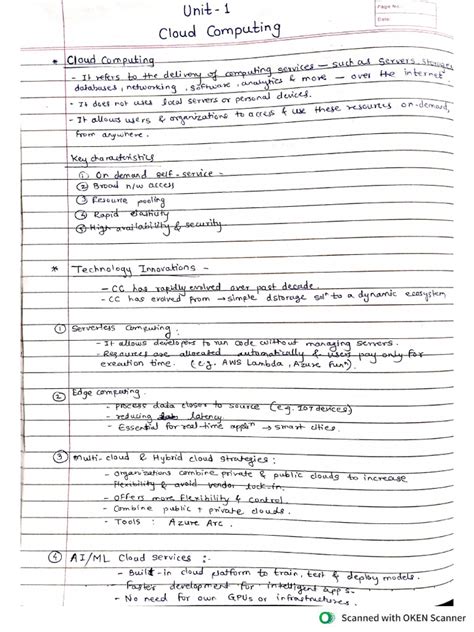 Unit - 1
Page No.
Date
Cloud Computing
* Cloud Computing
- It refers to the delivery of computing services — such as servers, storage,
databases, networking, software, analytics & more — over the internet
- It does not uses local servers or personal devices.
- It allows users & organizations to access & use these resources on-demand,
from anywhere.
Key characteristics
① On demand self-service -
② Broad n/w access
③ Resource pooling
④ Rapid elasticity
⑤ High availability & security
* Technology Innovations -
- CC has rapidly evolved over past decade.
- CC has evolved from → simple dstorage solⁿ to a dynamic ecosystem
① Serverless Computing :
- It allows developers to run code without managing servers.
- Resources are allocated automatically & users pay only for
execution time. (e.g. AWS Lambda, Azure Funⁿ).
② Edge computing.
- process data closer to source (e.g. IoT devices)
- reducing latency.
- Essential for real-time applⁿ → smart cities.
③ Multi-cloud & Hybrid cloud strategies :
- organizations combine private & public clouds to increase
flexibility & avoid vendor lock-in.
- offers more flexibility & control
- Combine public + private clouds.
- Tools : Azure Arc.
④ AI/ML Cloud services :-
- Built-in cloud platform to train, test & deploy models.
- Faster development for intelligent apps.
- No need for own GPUs or infrastructure.
Scanned with OKEN Scanner